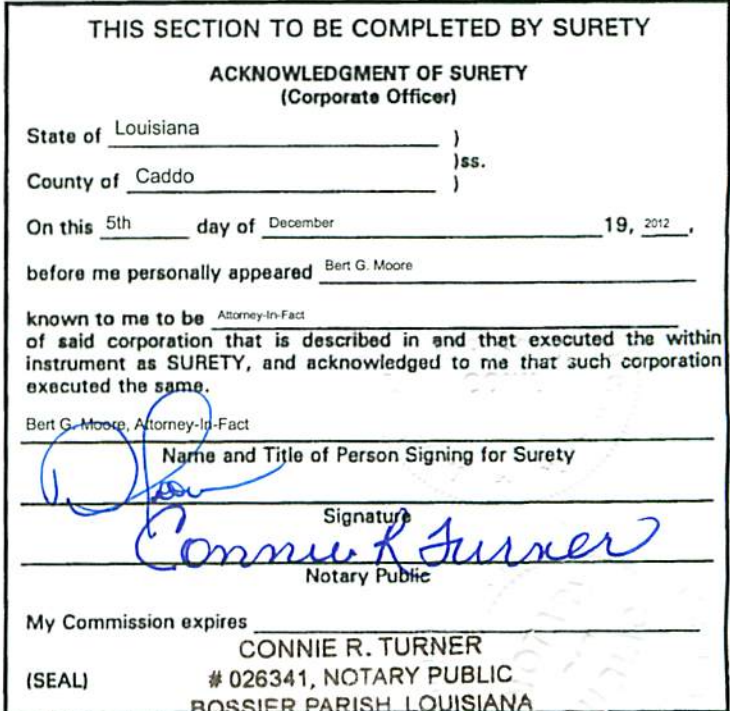 THIS SECTION TO BE COMPLETED BY SURETY
ACKNOWLEDGMENT OF SURETY
(Corporate Officer)
State of Louisiana )
)ss.
County of Caddo )
On this 5th day of December 19, 2012,
before me personally appeared Bert G. Moore
known to me to be Attorney-In-Fact
of said corporation that is described in and that executed the within
instrument as SURETY, and acknowledged to me that such corporation
executed the same.
Bert G. Moore, Attorney-In-Fact
Name and Title of Person Signing for Surety
Signature
Connie R Turner
Notary Public
My Commission expires
CONNIE R. TURNER
(SEAL) # 026341, NOTARY PUBLIC
BOSSIER PARISH, LOUISIANA